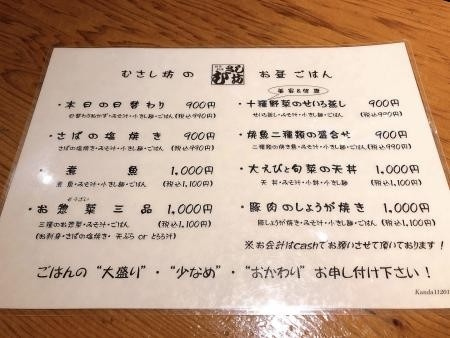 むさし坊の むさし坊 お昼ごはん
・本日の日替わり 900円
日替わりおかず・みそ汁・小さし麺・ごはん (税込990円)
・さばの塩焼き 900円
さばの塩焼き・みそ汁・小さし麺・ごはん (税込990円)
・煮魚 1,000円
煮魚・みそ汁・小さし麺・ごはん (税込1,100円)
・お惣菜三品 1,000円
三種のお惣菜・みそ汁・ごはん (税込1,100円)
(お刺身・さばの塩焼き・天ぷら or とろろ汁)
美容&健康
・十種野菜のせいろ蒸し 900円
せいろ蒸し・みそ汁・小さし麺・ごはん (税込990円)
・焼魚二種類の盛合せ 900円
二種類の焼き魚・みそ汁・小さし麺・ごはん (税込990円)
・大えびと旬菜の天丼 1,000円
天丼・みそ汁・小鉢・小さし麺 (税込1,100円)
・豚肉のしょうが焼き 1,000円
豚しょうが焼き・みそ汁・小さし麺・ごはん (税込1,100円)
※お会計はcashでお願いさせて頂いております!
ごはんの“大盛り”・“少なめ”・“おかわり”お申し付け下さい!
Kanda11201